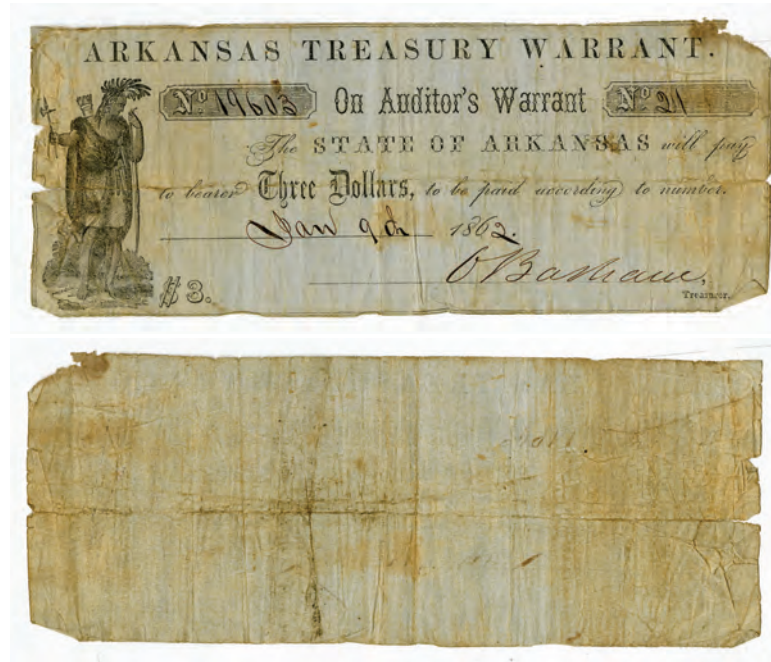 ARKANSAS TREASURY WARRANT.
No 19603 On Auditor's Warrant No 21
The STATE OF ARKANSAS will pay
to bearer Three Dollars, to be paid according to number.
Jan 9th 1862.
O Basham,
Treasurer.
$3.